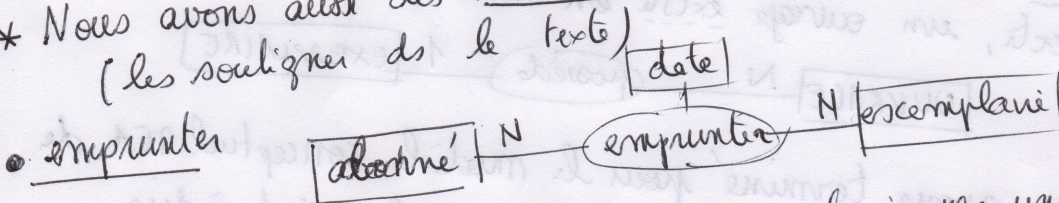 * Nous avons aussi des
(les souligner ds le texte)
date
• emprunter abonné N emprunter N exemplaire